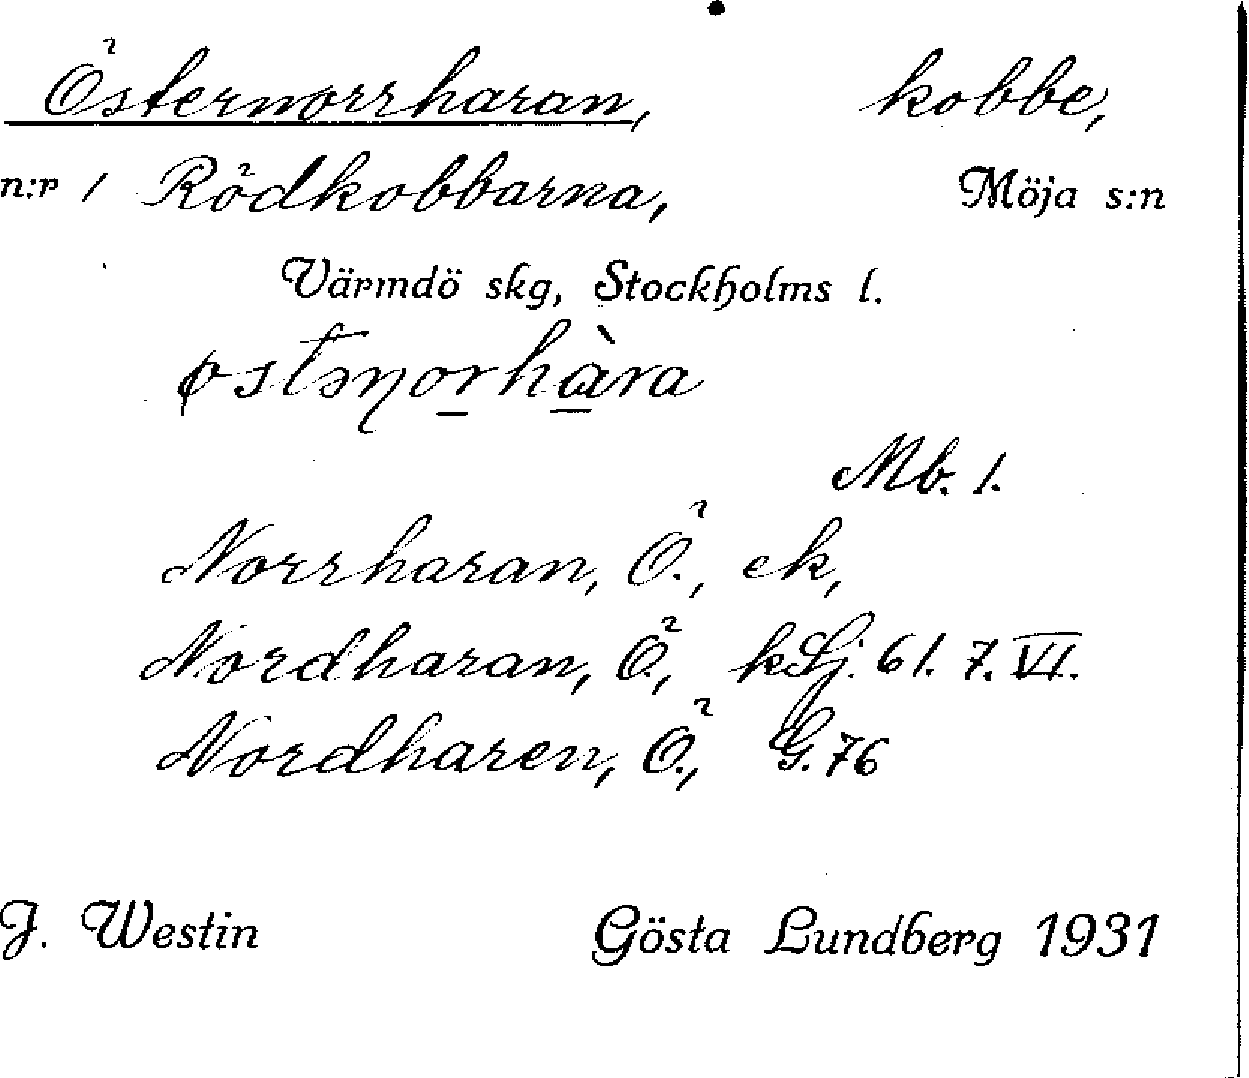 Östernorrharan, kobbe,
n:r 1 Rödkobbarna, Möja s:n
Värmdö skg, Stockholms l.
østəŋorhàra
Mb. 1.
Norrharan, Ö., ek,
Nordharan, Ö., kLj. 61. 7. VI.
Nordharen, Ö., G. 76
J. Westin Gösta Lundberg 1931